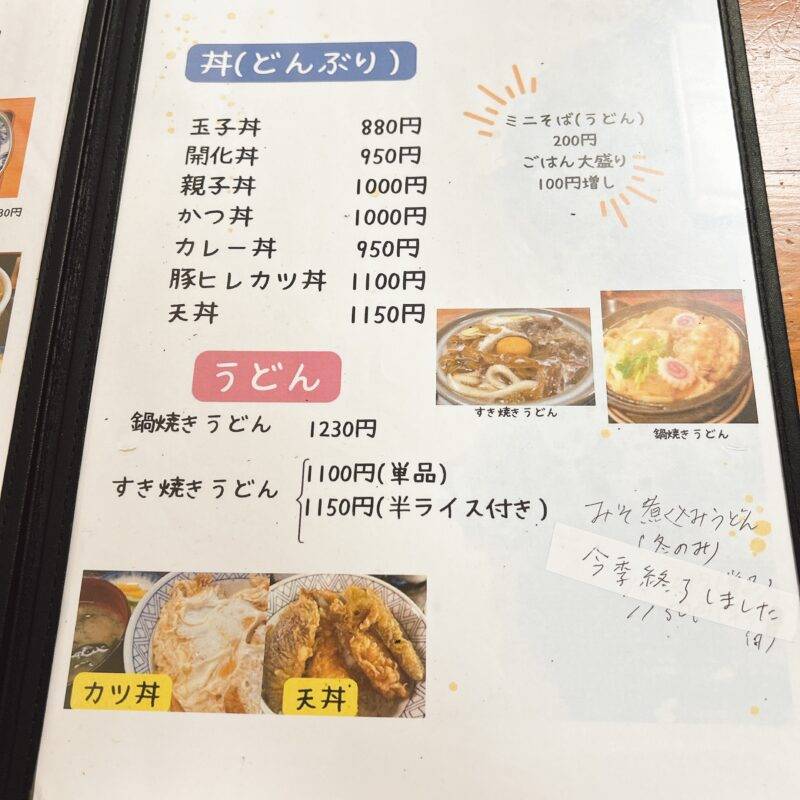 丼(どんぶり)
玉子丼 880円
開化丼 950円
親子丼 1000円
かつ丼 1000円
カレー丼 950円
豚ヒレカツ丼 1100円
天丼 1150円
ミニそば(うどん)
200円
ごはん大盛り
100円増し
すき焼きうどん
鍋焼きうどん
うどん
鍋焼きうどん 1230円
すき焼きうどん
1100円(単品)
1150円(半ライス付き)
みそ煮込みうどん
(冬のみ)
今季終了しました
カツ丼
天丼